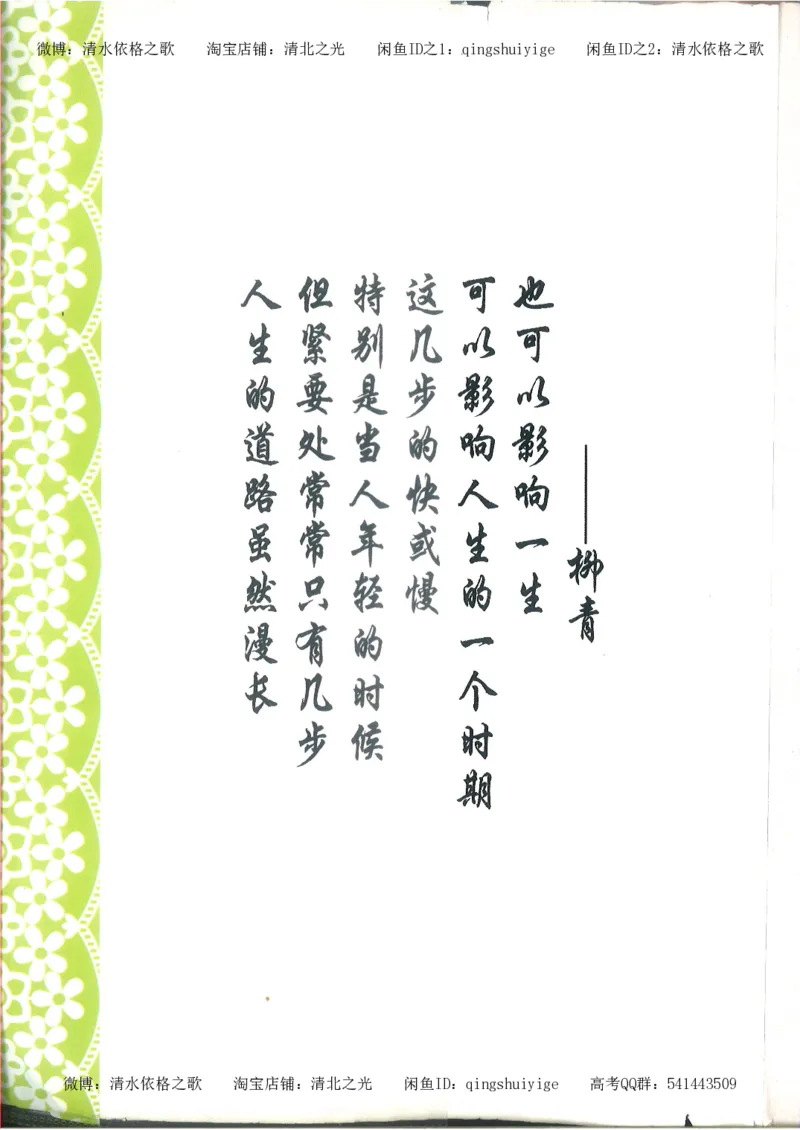 微博：清水依格之歌 淘宝店铺：清北之光 闲鱼ID之1：qingshuiyige 闲鱼ID之2：清水依格之歌
人生的道路虽然漫长
但紧要处常常只有几步
特别是当人年轻的时候
这几步的快或慢
可以影响人生的一个时期
也可以影响一生
——柳青
微博：清水依格之歌 淘宝店铺：清北之光 闲鱼ID：qingshuiyige 高考QQ群：541443509